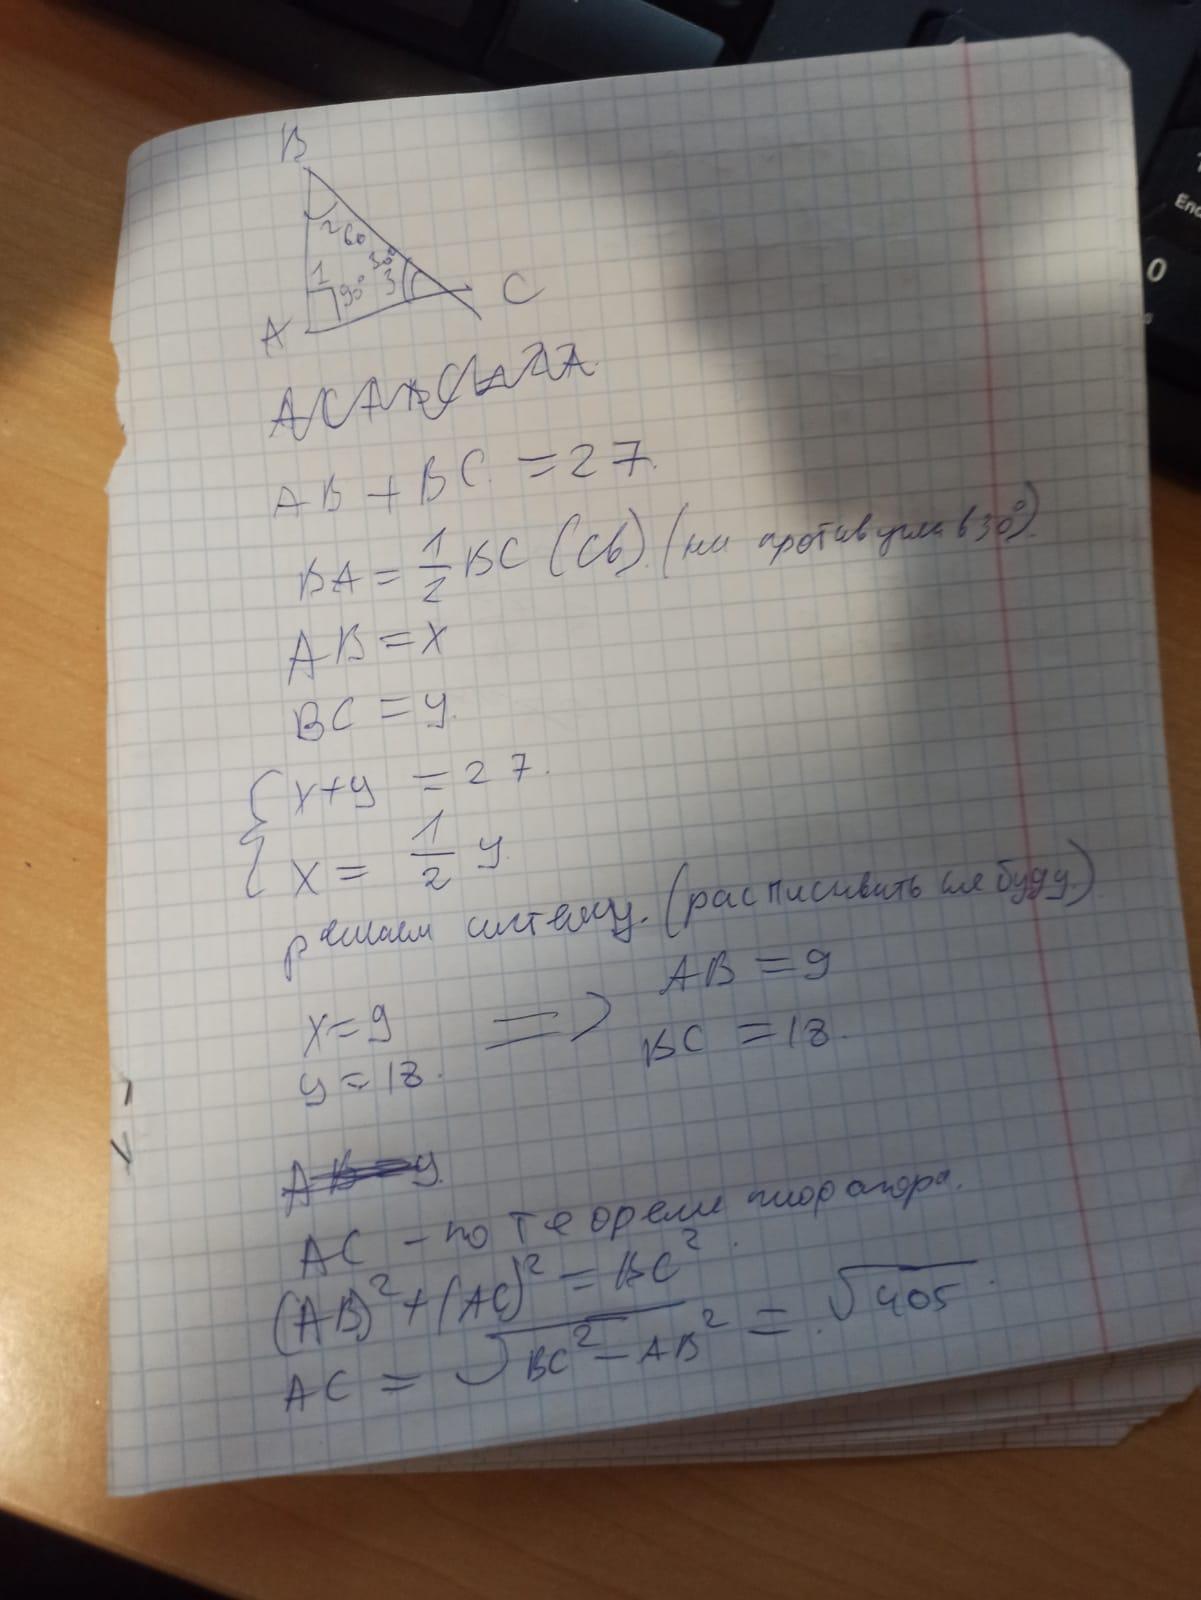 B
2 60
30°
1
90° 3
C
A
AB + BC = 27.
BA = 1/2 BC (Cb). (на против угла в 30°).
AB = x
BC = y.
{ x+y = 27.
x = 1/2 y.
решаем систему. (расписывать не буду.)
x = 9 => AB = 9
y = 18. BC = 18.
AB = y
AC - по теореме пифагора.
(AB)² + (AC)² = BC².
AC = √BC² - AB² = √405.
Enc
0